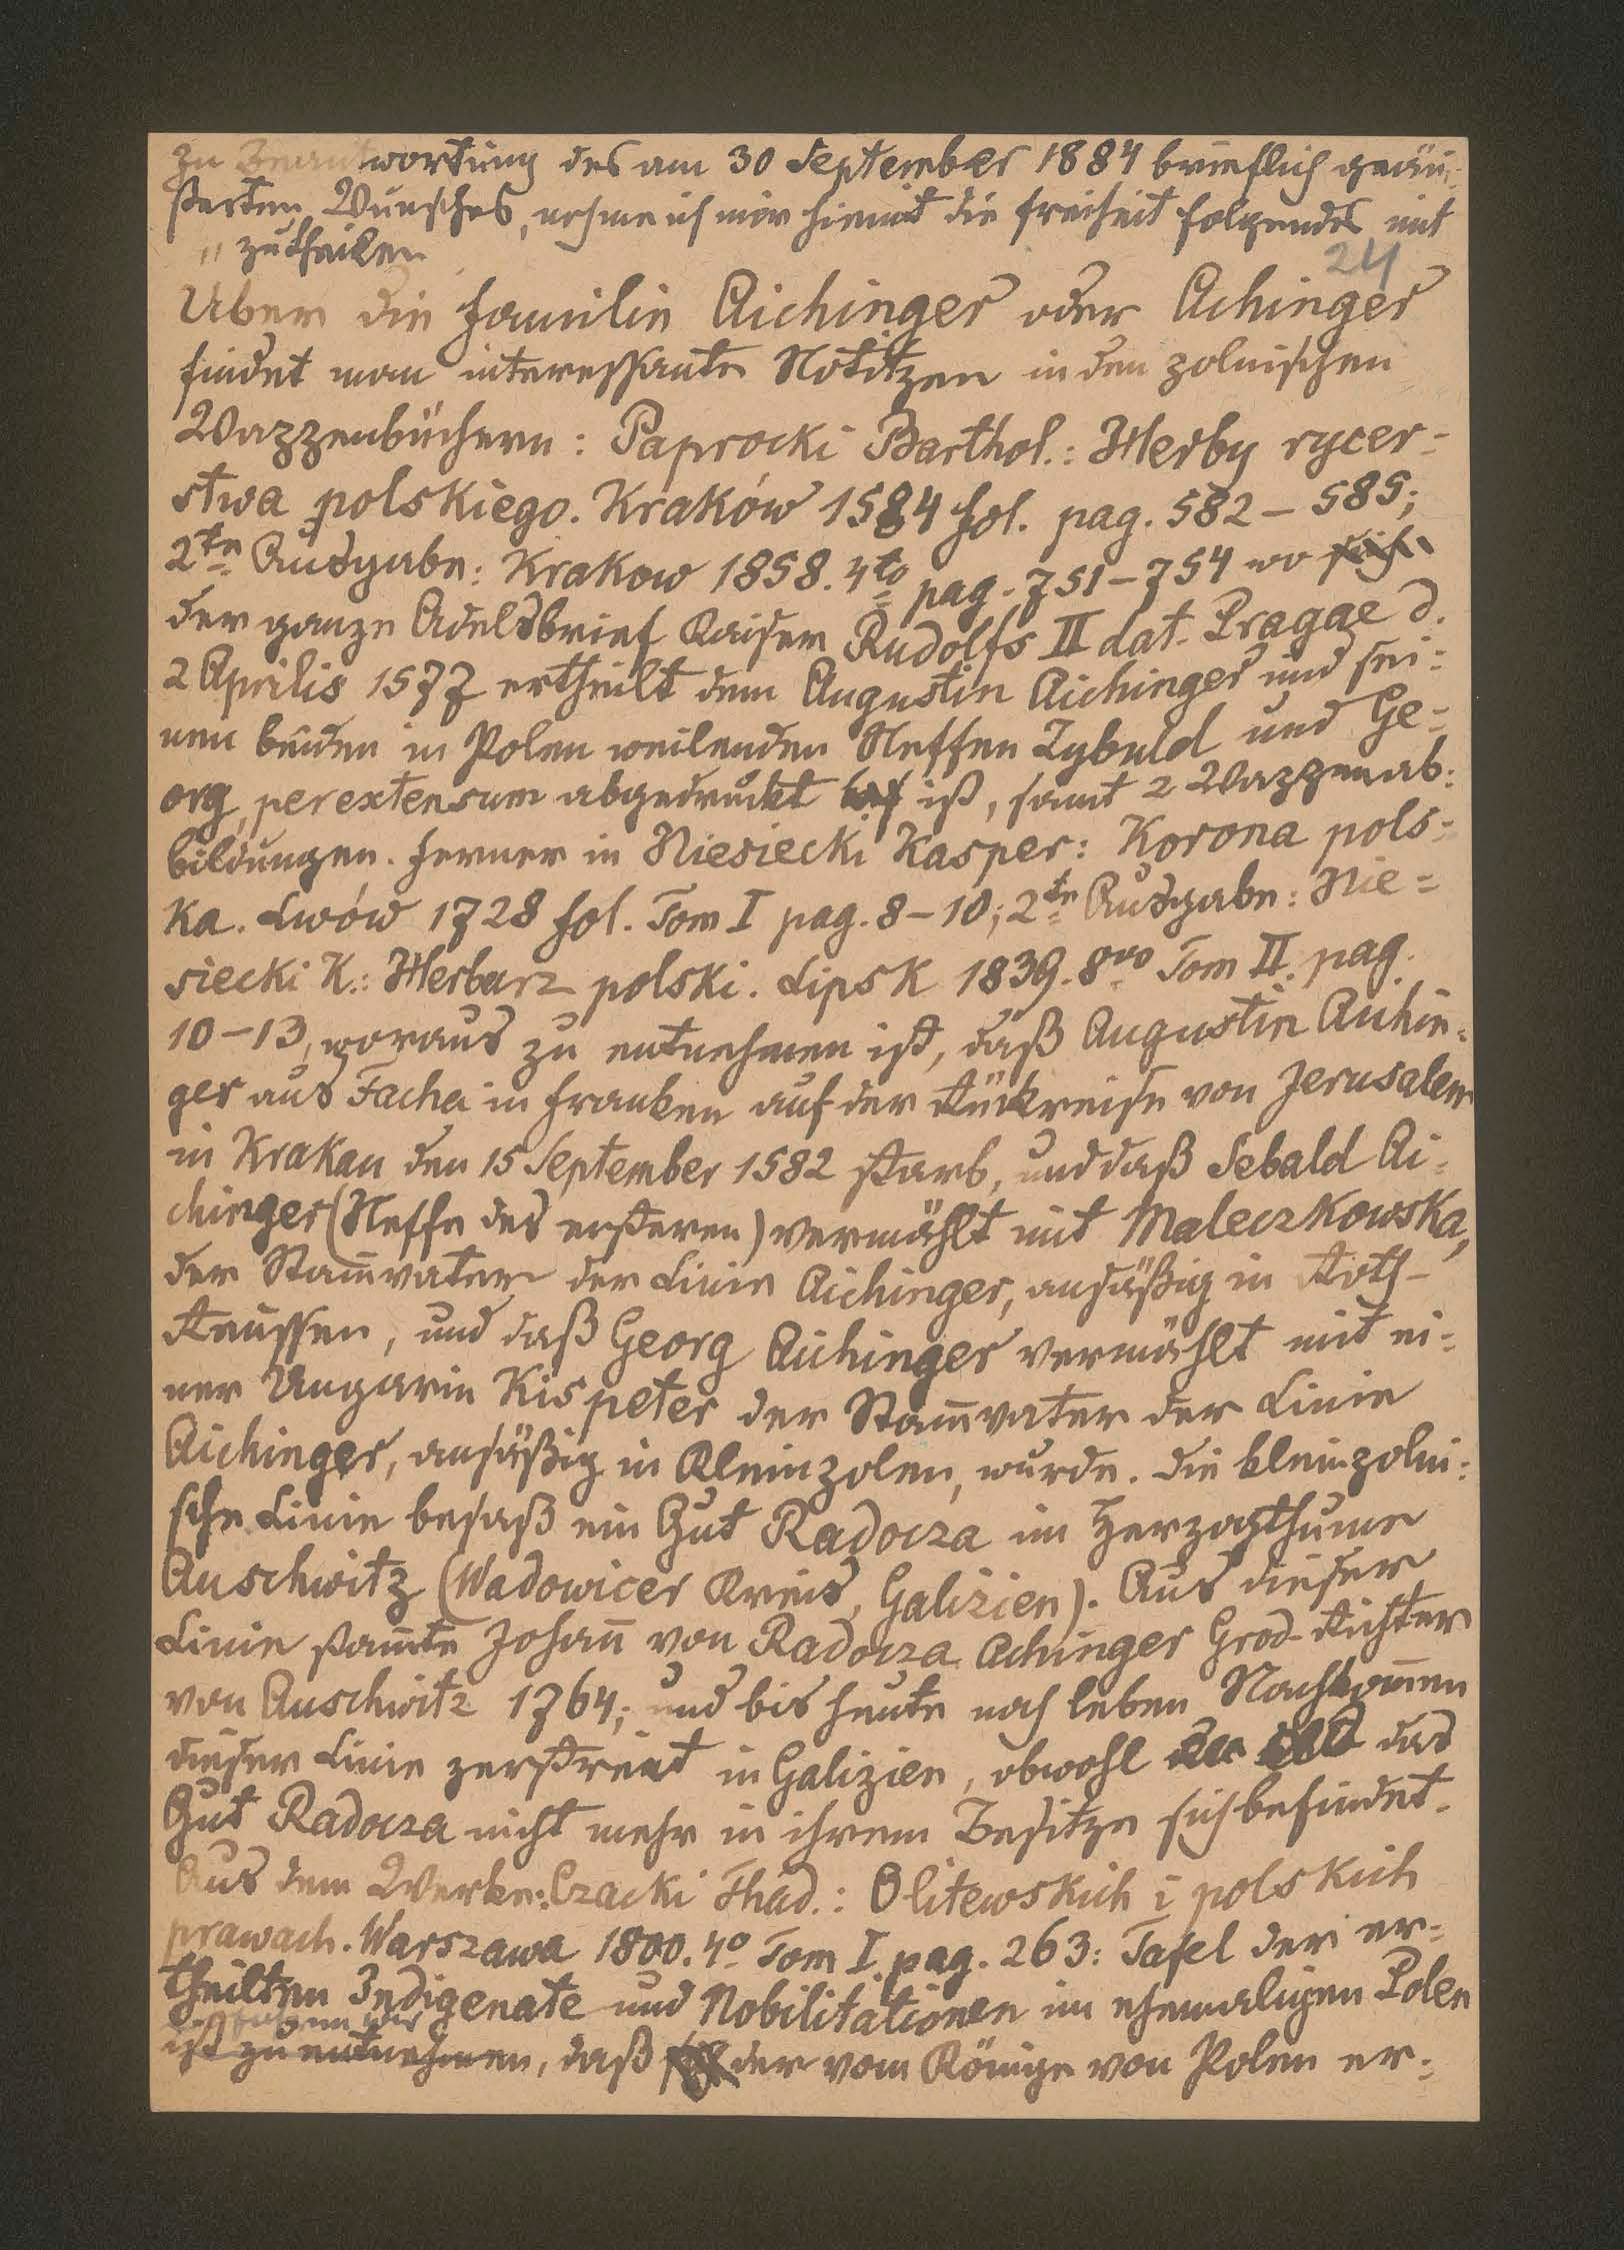 Zu Beantwortung des am 30 September 1884 brieflich geäu-
ßerten Wunsches, nehme ich mir hiemit die Freiheit folgendes mit
" zutheilen
24
Uber die Familie Aichinger oder Achinger
findet man interessante Notitzen in den polnischen
Wappenbüchern: Paprocki Barthol.: Herby rycer-
stwa polskiego. Kraków 1584 fol. pag. 582–585;
2te Ausgabe: Krakow 1858. 4to pag. 751–754 wo sich
der ganze Adelsbrief Kaiser Rudolfs II dat. Pragae d.
2 Aprilis 1577 ertheilt dem Augustin Aichinger und sei-
nen beiden in Polen weilenden Neffen Zybuld und Ge-
org, per extensum abgedruckt ist, samt 2 Wappenab-
bildungen. Ferner in Niesiecki Kasper: Korona pols-
ka. Lwów 1728 fol. Tom I pag. 8–10; 2te Ausgabe: Nie-
siecki K.: Herbarz polski. Lipsk 1839. 8vo Tom II. pag.
10–13, woraus zu entnehmen ist, daß Augustin Aichin-
ger aus Facha in Franken auf der Rückreise von Jerusalem
in Krakau den 15 September 1582 starb, und daß Sebald Ai-
chinger (Neffe des ersteren) vermählt mit Maleczkowska,
der Stam̄vater der Linie Aichinger, ansäßig in Roth-
Reussen, und daß Georg Aichinger vermählt mit ei-
ner Ungarin Kispeter der Stam̄vater der Linie
Aichinger, ansäßig in Kleinpolen, wurde. Die kleinpolni-
sche Linie besaß ein Gut Radocza im Herzogthume
Auschwitz (Wadowicer Kreis, Galizien). Aus dieser
Linie stam̄te Johan̄ von Radocza Achinger Grod-Richter
von Auschwitz 1764; und bis heute noch leben Nachkom̄en
dieser Linie zerstreut in Galizien, obwohl das
Gut Radocza nicht mehr in ihrem Besitze sich befindet.
Aus dem Werke: Czacki Thad.: O litewskich i polskich
prawach. Warszawa 1800. 4o Tom I. pag. 263: Tafel der er-
theilten Indigenate und Nobilitationen im ehemaligen Polen
ist zu entnehmen, daß der vom Könige von Polen er-